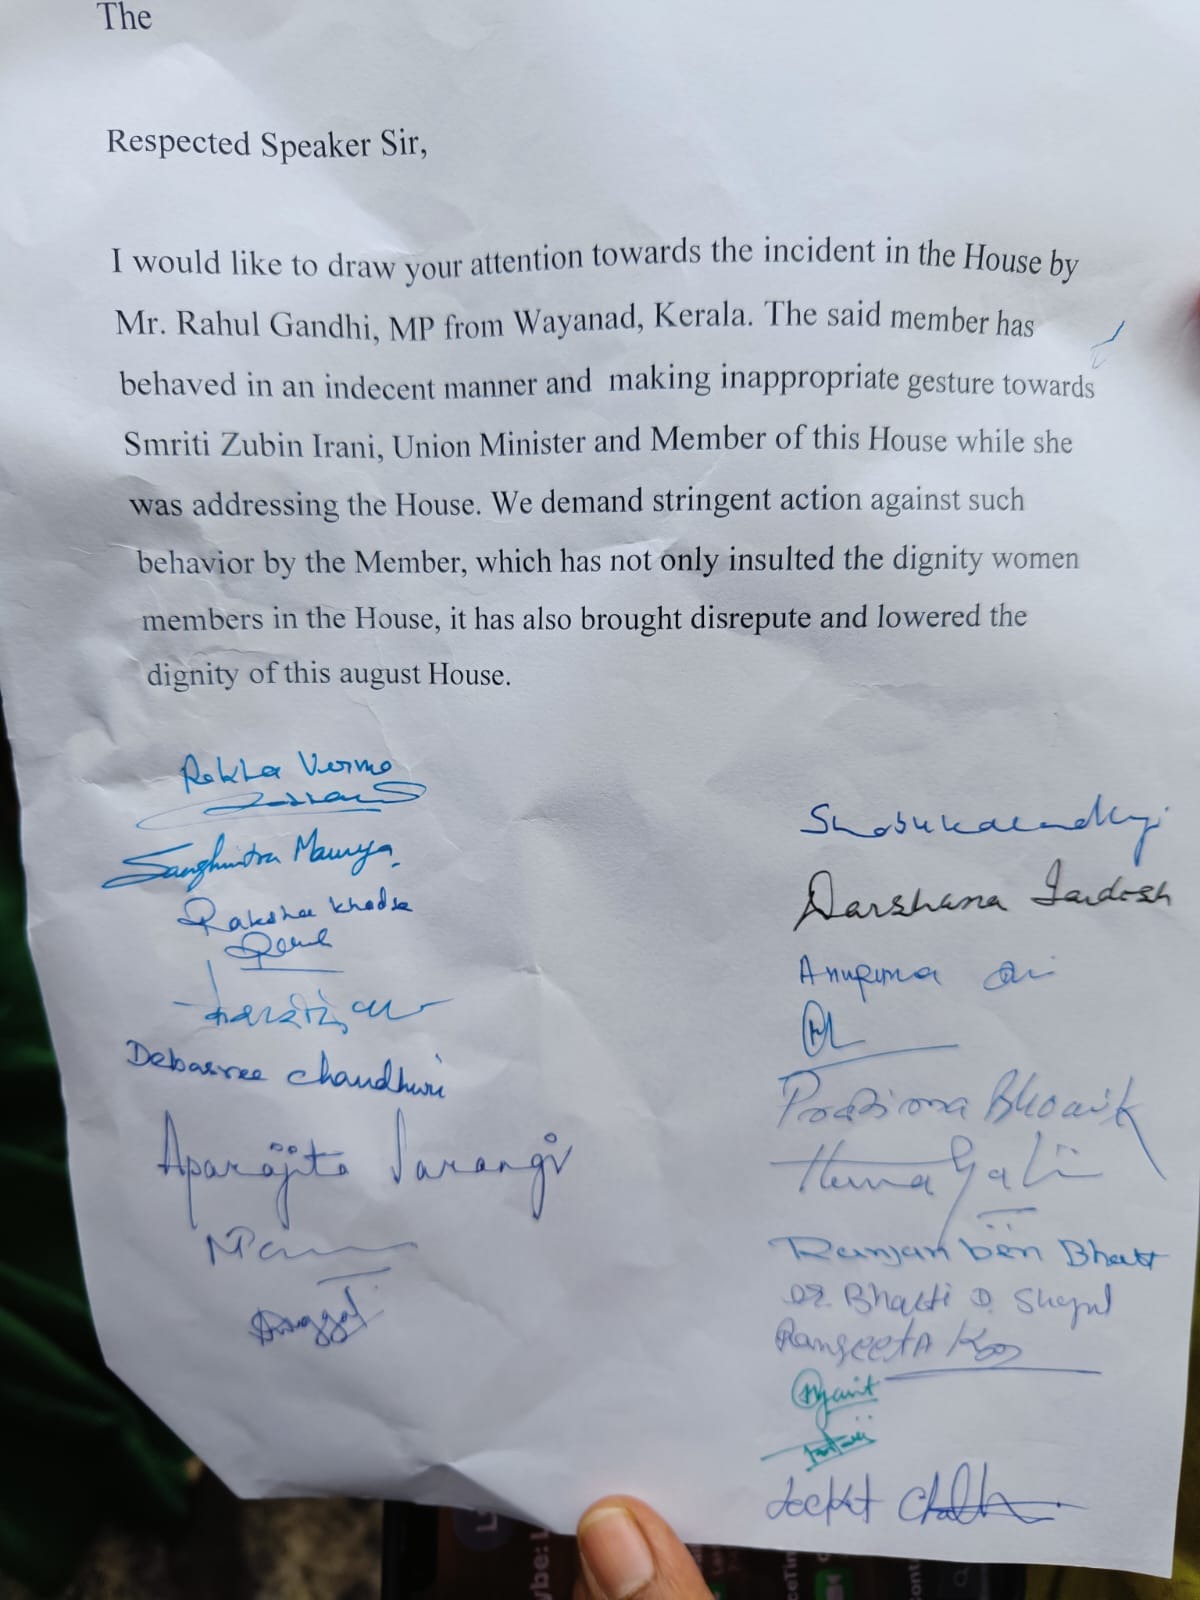 The
Respected Speaker Sir,
I would like to draw your attention towards the incident in the House by
Mr. Rahul Gandhi, MP from Wayanad, Kerala. The said member has
behaved in an indecent manner and making inappropriate gesture towards
Smriti Zubin Irani, Union Minister and Member of this House while she
was addressing the House. We demand stringent action against such
behavior by the Member, which has not only insulted the dignity women
members in the House, it has also brought disrepute and lowered the
dignity of this august House.
Rekha Verma
Sanghmitra Maurya
Raksha Khadse
Debasree Chaudhuri
Aparajita Sarangi
Darshana Jardosh
Anupriya
Pratima Bhoumik
Hema
Ranjan ben Bhatt
Dr. Bharti D. Shyal
Rangeeta